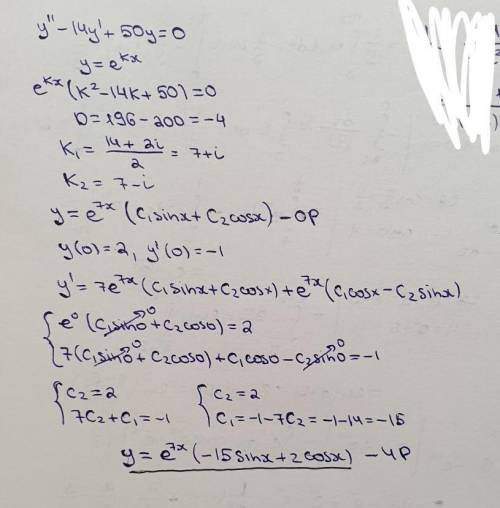 y'' - 14y' + 50y = 0
y = e^{kx}
e^{kx}(k² - 14k + 50) = 0
D = 196 - 200 = -4
k₁ = (14 + 2i)/2 = 7 + i
k₂ = 7 - i
y = e^{7x} (C₁sinx + C₂cosx) - ОР
y(0) = 2, y'(0) = -1
y' = 7e^{7x}(C₁sinx + C₂cosx) + e^{7x}(C₁cosx - C₂sinx)
{ e⁰ (C₁sin0 + C₂cos0) = 2
7(C₁sin0 + C₂cos0) + C₁cos0 - C₂sin0 = -1
{ C₂ = 2 { C₂ = 2
7C₂ + C₁ = -1 C₁ = -1 - 7C₂ = -1 - 14 = -15
y = e^{7x} (-15sinx + 2cosx) - ЧР